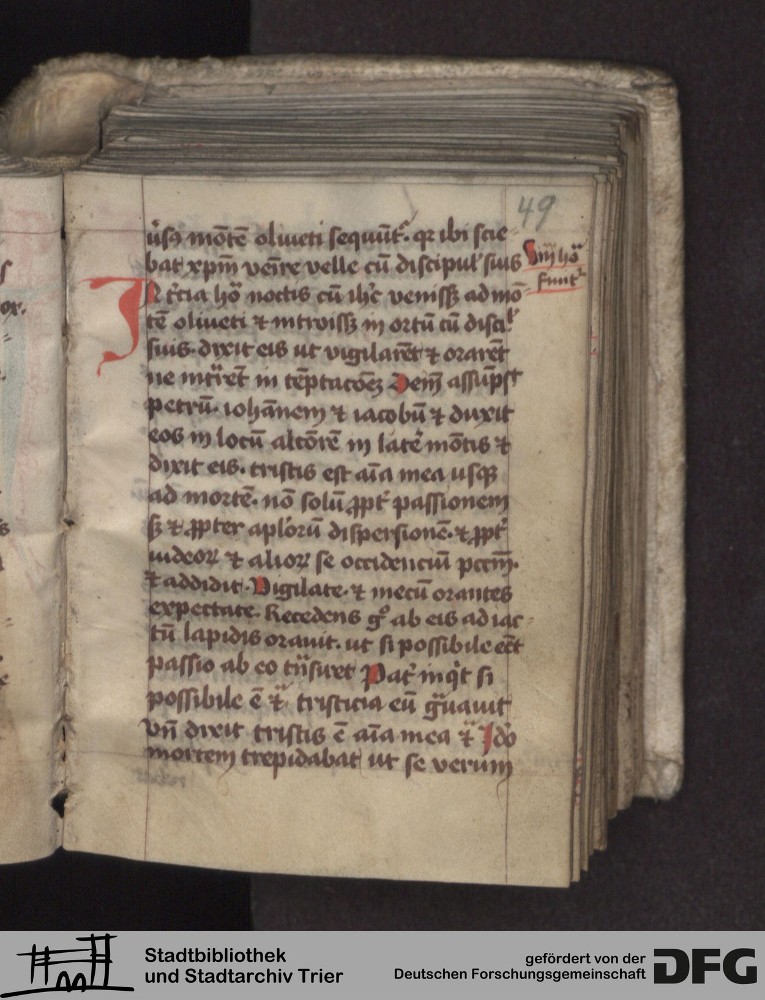 49
ūsꝫ mōtē oliueti sequūt͛. qꝛ ibi scie
bat xp̄m ven̄re velle cū discipul' suis
hō
funt͛
IN t͛cia hō noctis cū ih̄c venissꝫ ad mō
tē oliueti ⁊ introissꝫ in ortū cū disci.ˡ
suis. dixit eis ut vigilarēt ⁊ orarēt
ne int͛rēt in tēptacōeꝫ Dem̄ assūpsit
petrū. iohānem ⁊ iacobū ⁊ duxit
eos in locū altōrē in lat͛e mōtis ⁊
dixit eis. tristis est aīa mea usqꝫ
ad mortē. nō solū ꝓpt͛ passionem
sꝫ ⁊ ꝓpter apl'orū dispersionē. ⁊ ꝓpt͛
iudeoꝝ ⁊ alioꝝ se occidenciū pccm̄.
⁊ addidit. Vigilate. ⁊ mecū orantes
expectate. Recedens gͦ ab eis ad iac
tū lapidis orauit. ut si possibile eēt
passio ab eo t͛nsiret Pat͛ inqͥt si
possibile ē ⁊ͨ tristicia eū gͣuauit
vn̄ dixit tristis ē aīa mea ⁊ͨ Idō
mortem trepidabat ut se verum
Stadtbibliothek
und Stadtarchiv Trier
gefördert von der
Deutschen Forschungsgemeinschaft
DFG